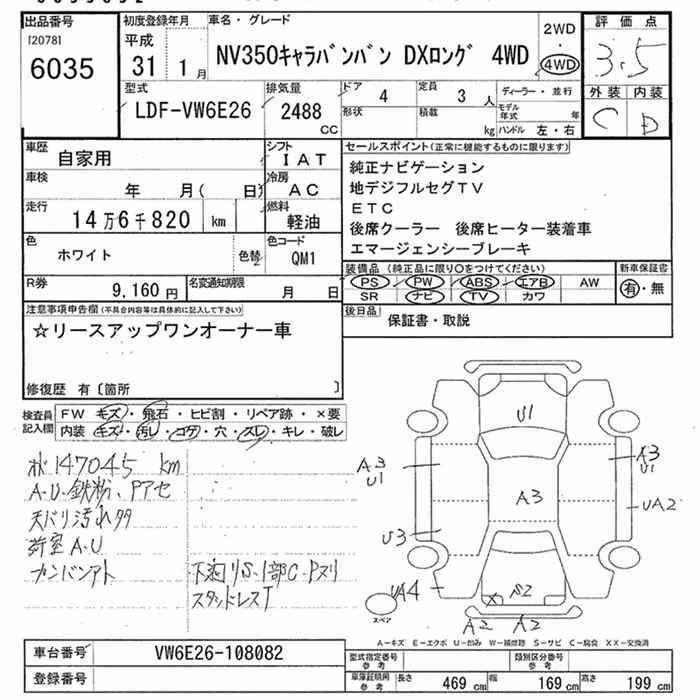 出品番号
120781
6035
初度登録年月
平成
31 1月
車名・グレード
NV350キャラバンバン DXロング 4WD
2WD
・
4WD
評価点
3.5
外装 内装
C D
型式
LDF-VW6E26
排気量
2488
cc
ドア
4
定員
3人
形状
積載
kg
ディーラー・並行
モデル年式 年
ハンドル 左・右
車歴
自家用
シフト
IAT
車検
年 月( 日)
冷房
AC
走行
14万6千820 km
燃料
軽油
色
ホワイト
色替
色コード
QM1
R券
9,160円
名変通知期限
月 日
セールスポイント(正常に機能するものに限ります)
純正ナビゲーション
地デジフルセグTV
ETC
後席クーラー 後席ヒーター装着車
エマージェンシーブレーキ
装備品(純正品に限り○をつけてください)
PS PW ABS エアB AW
SR ナビ TV カワ
新車保証書
有・無
後日品
保証書・取説
注意事項申告欄(不具合内容等は具体的に記入して下さい)
☆リースアップワンオーナー車
修復歴 有〔箇所 〕
検査員記入欄
FW キズ・飛石・ヒビ割・リペア跡・×要
内装 キズ・汚レ・コゲ・穴・スレ・キレ・破レ
147045 km
A・U・鉄粉、Pアセ
天バリ汚れ
荷室A・U
カンバンアト
下廻りS・1部C・Pヌリ
スタッドレスT
U1
A3
U1
A3
U1
A3
UA2
U3
UA4
S2
A2 A2
スペア
A-キズ E-エクボ U-凹み W-補修跡 S-サビ C-腐食 XX-交換済
車台番号
VW6E26-108082
登録番号
型式指定番号
参考
類別区分番号
参考
車庫証明用
参考
長さ 469cm
幅 169cm
高さ 199cm